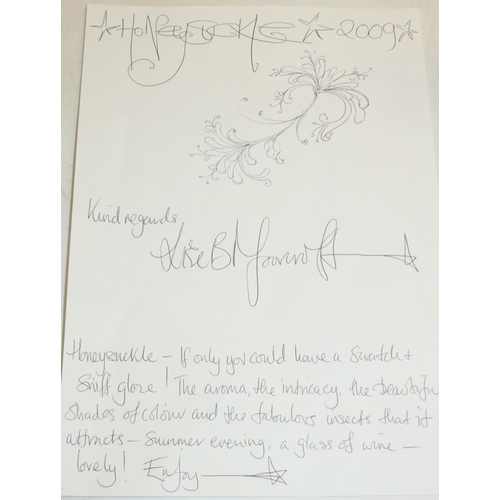 ☆ HONEYSUCKLE ☆ 2009 ☆
Kind regards
Honeysuckle – If only you could have a Scratch +
Sniff glaze! The aroma, the intricacy, the beautiful
Shades of colour and the fabulous insects that it
attracts – Summer evening, a glass of wine –
lovely! Enjoy